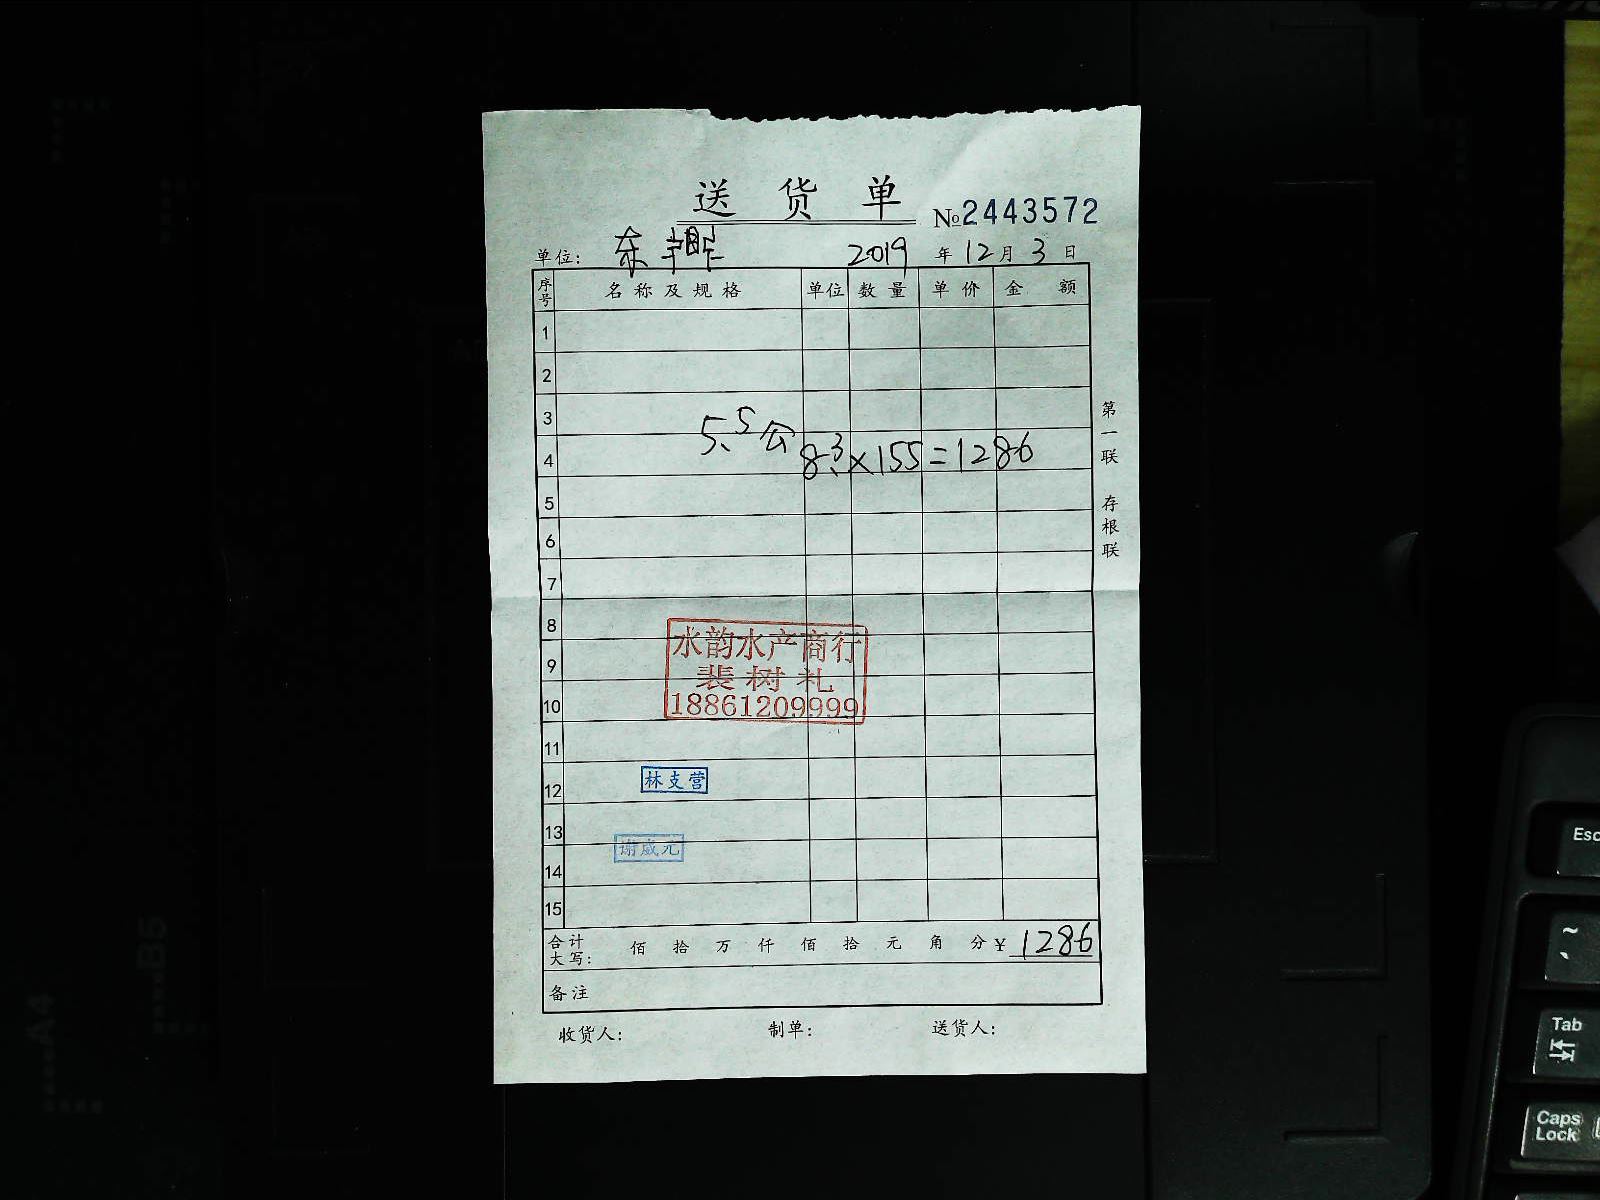 送货单
№2443572
单位: 东 2019年12月3日
序号 名称及规格 单位 数量 单价 金额
1
2
3
5.5公
4 8.3×155=1286
5
6
7
8
水韵水产商行
9
裴树礼
10 18861209999
11
12 林支营
13
谢威元
14
15
合计大写: 佰 拾 万 仟 佰 拾 元 角 分 ¥ 1286
备注
收货人: 制单: 送货人:
第一联 存根联
A4
B5
Esc
~
Tab
Caps Lock